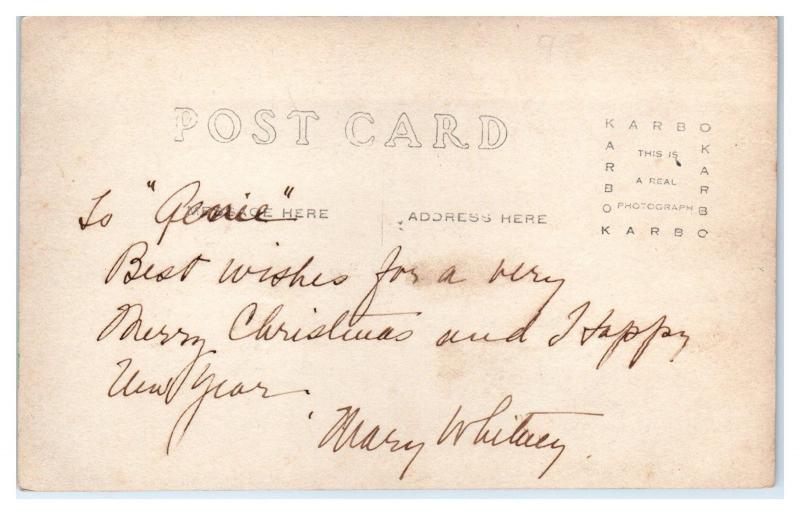 POST CARD
KARBO
KARBO
KARBO
KARBO
THIS IS
A REAL
PHOTOGRAPH
MESSAGE HERE
ADDRESS HERE
To "Genie"
Best wishes for a very
Merry Christmas and Happy
New Year.
Mary Whitney.